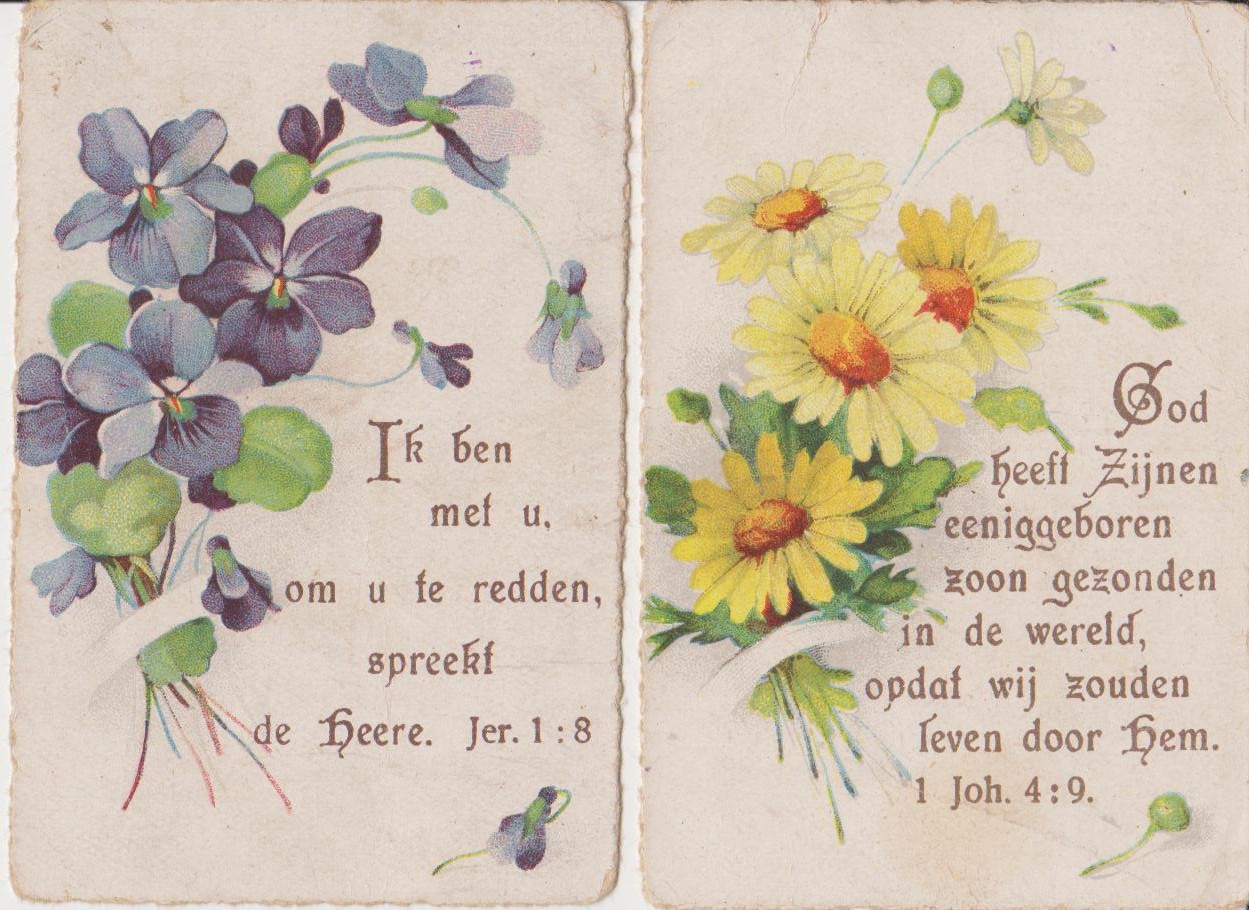 Ik ben
met u,
om u te redden,
spreekt
de Heere. Jer. 1 : 8
God
heeft Zijnen
eeniggeboren
zoon gezonden
in de wereld,
opdat wij zouden
leven door Hem.
1 Joh. 4 : 9.